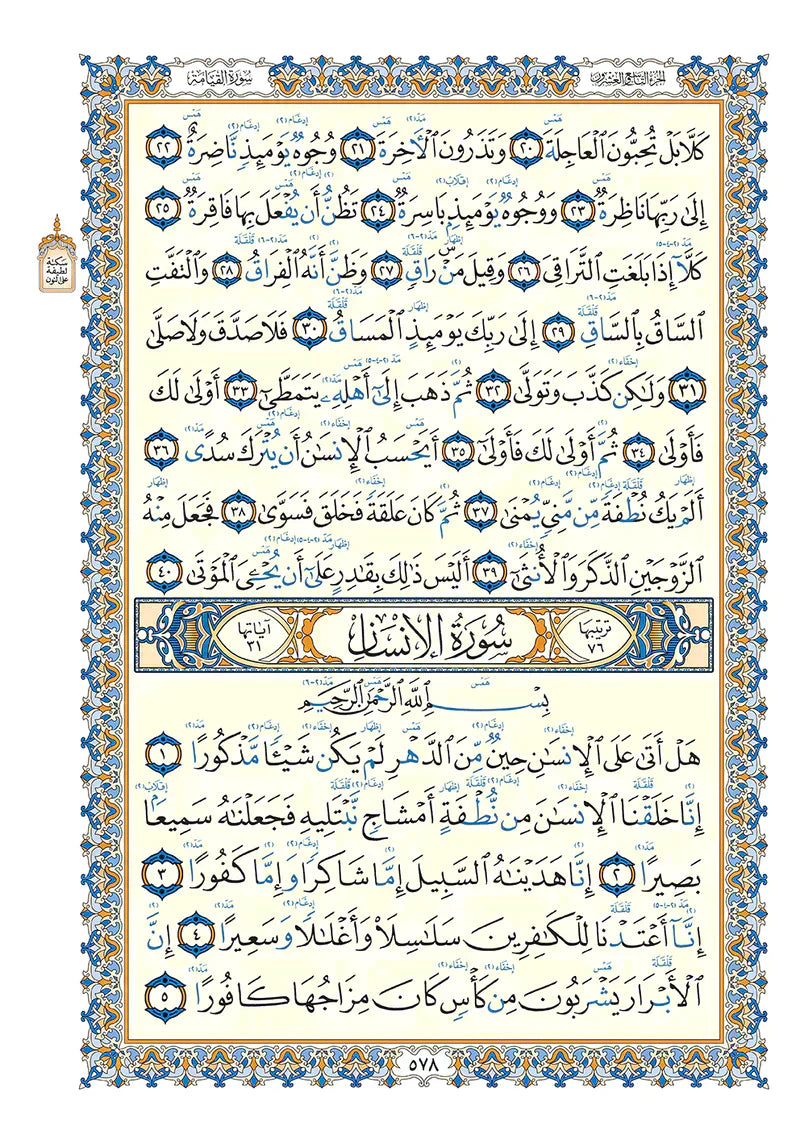 سُورَةُ القِيَامَةِ
الجزء التاسع والعشرون
كَلَّا بَلْ تُحِبُّونَ ٱلْعَاجِلَةَ ٢٠ وَتَذَرُونَ ٱلْأَخِرَةَ ٢١ وُجُوهٌ يَوْمَئِذٍ نَّاضِرَةٌ ٢٢
إِلَىٰ رَبِّهَا نَاظِرَةٌ ٢٣ وَوُجُوهٌ يَوْمَئِذٍۭ بَاسِرَةٌ ٢٤ تَظُنُّ أَن يُفْعَلَ بِهَا فَاقِرَةٌ ٢٥
كَلَّآ إِذَا بَلَغَتِ ٱلتَّرَاقِيَ ٢٦ وَقِيلَ مَنْ رَاقٍ ٢٧ وَظَنَّ أَنَّهُ ٱلْفِرَاقُ ٢٨ وَٱلْتَفَّتِ
سكتة
لطيفة
على النون
ٱلسَّاقُ بِٱلسَّاقِ ٢٩ إِلَىٰ رَبِّكَ يَوْمَئِذٍ ٱلْمَسَاقُ ٣٠ فَلَا صَدَّقَ وَلَا صَلَّىٰ
٣١ وَلَٰكِن كَذَّبَ وَتَوَلَّىٰ ٣٢ ثُمَّ ذَهَبَ إِلَىٰٓ أَهْلِهِۦ يَتَمَطَّىٰٓ ٣٣ أَوْلَىٰ لَكَ
فَأَوْلَىٰ ٣٤ ثُمَّ أَوْلَىٰ لَكَ فَأَوْلَىٰٓ ٣٥ أَيَحْسَبُ ٱلْإِنسَٰنُ أَن يُتْرَكَ سُدًى ٣٦
أَلَمْ يَكُ نُطْفَةً مِّن مَّنِيٍّ يُمْنَىٰ ٣٧ ثُمَّ كَانَ عَلَقَةً فَخَلَقَ فَسَوَّىٰ ٣٨ فَجَعَلَ مِنْهُ
ٱلزَّوْجَيْنِ ٱلذَّكَرَ وَٱلْأُنثَىٰٓ ٣٩ أَلَيْسَ ذَٰلِكَ بِقَٰدِرٍ عَلَىٰٓ أَن يُحْـِۧيَ ٱلْمَوْتَىٰ ٤٠
ترتيبها ٧٦ سُورَةُ الإِنسَانِ آياتها ٣١
بِسْمِ ٱللَّهِ ٱلرَّحْمَٰنِ ٱلرَّحِيمِ
هَلْ أَتَىٰ عَلَى ٱلْإِنسَٰنِ حِينٌ مِّنَ ٱلدَّهْرِ لَمْ يَكُن شَيْـًٔا مَّذْكُورًا ١
إِنَّا خَلَقْنَا ٱلْإِنسَٰنَ مِن نُّطْفَةٍ أَمْشَاجٍ نَّبْتَلِيهِ فَجَعَلْنَٰهُ سَمِيعًۢا
بَصِيرًا ٢ إِنَّا هَدَيْنَٰهُ ٱلسَّبِيلَ إِمَّا شَاكِرًا وَإِمَّا كَفُورًا ٣
إِنَّآ أَعْتَدْنَا لِلْكَٰفِرِينَ سَلَٰسِلَا۟ وَأَغْلَٰلًا وَسَعِيرًا ٤ إِنَّ
ٱلْأَبْرَارَ يَشْرَبُونَ مِن كَأْسٍ كَانَ مِزَاجُهَا كَافُورًا ٥
٥٧٨